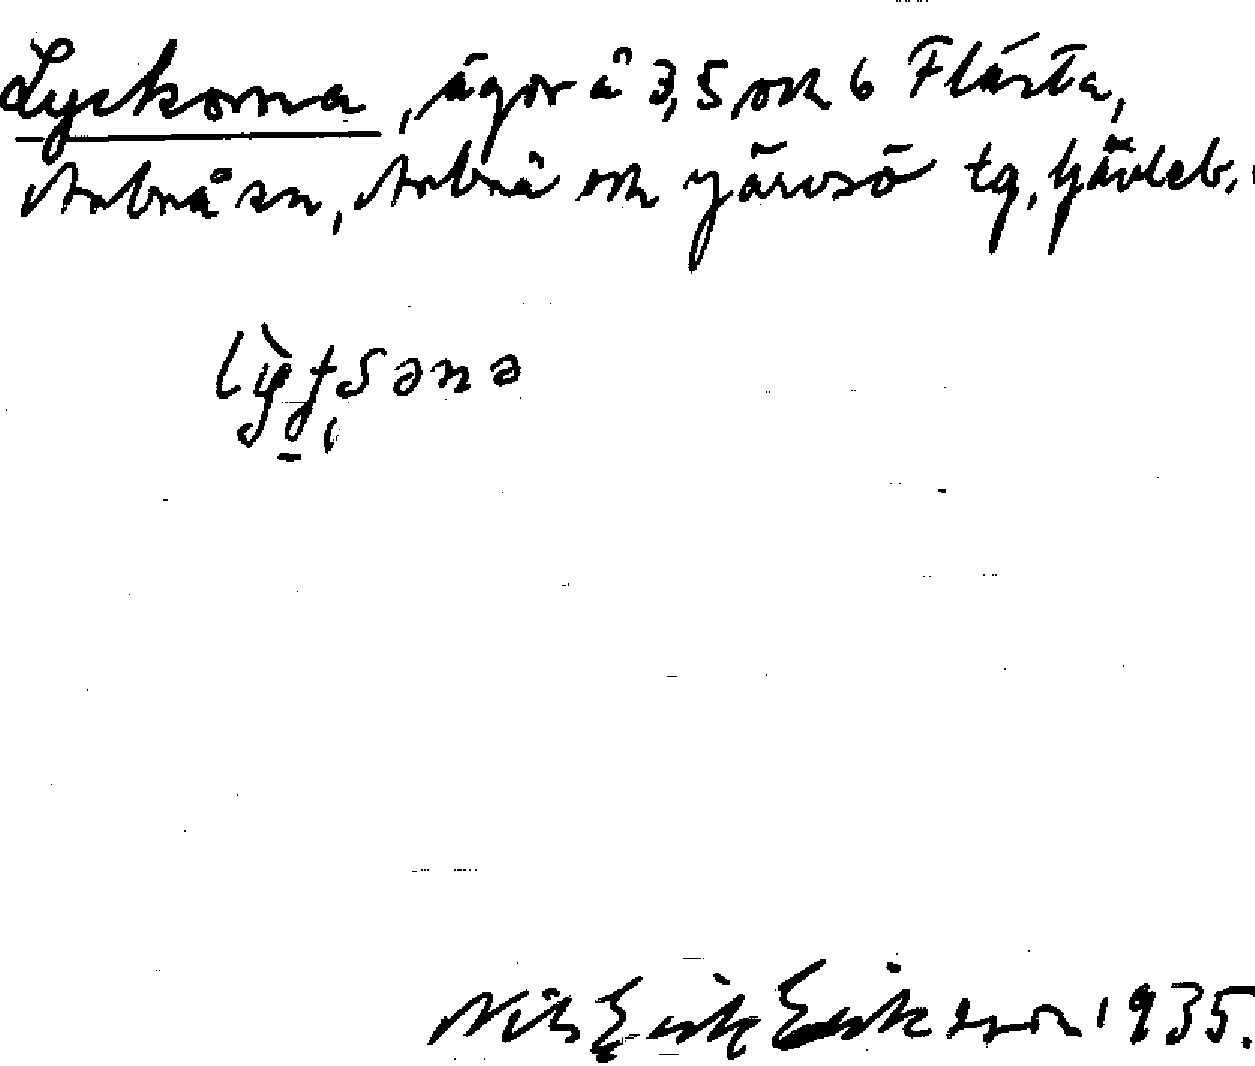 Lyckorna, ägor å 3, 5 och 6 Flästa,
Arbrå sn, Arbrå och Järvsö tg, Gävleb.
Nils Erik Eriksson 1935.